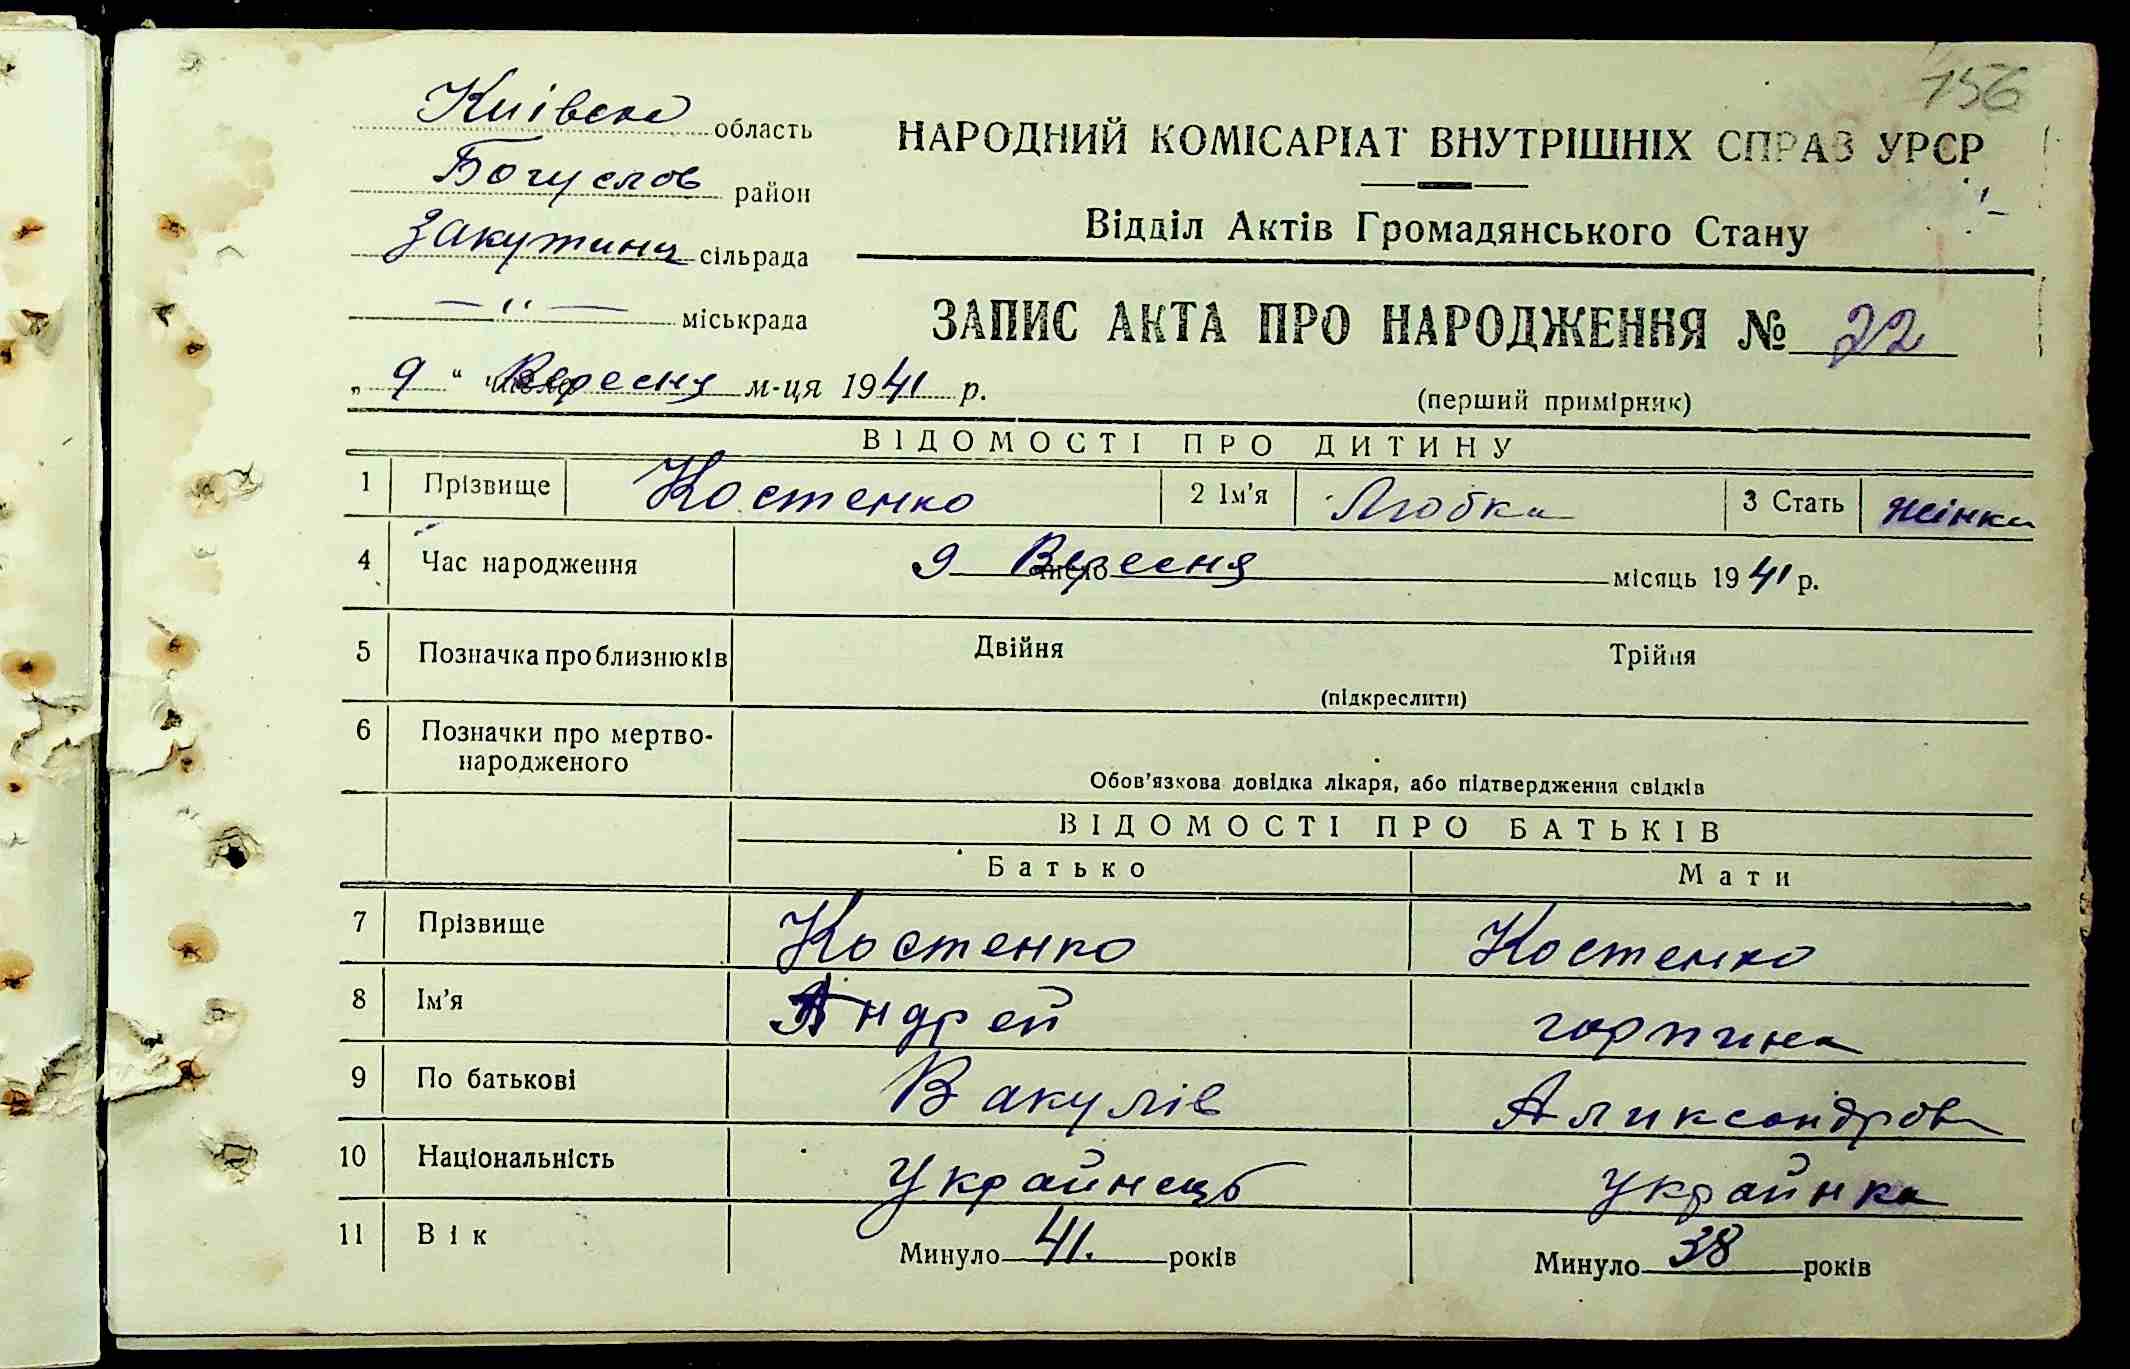 156
Київска область
Богуслов район
Закутини сільрада
— " — міськрада
НАРОДНИЙ КОМІСАРІАТ ВНУТРІШНІХ СПРАВ УРСР
Відділ Актів Громадянського Стану
ЗАПИС АКТА ПРО НАРОДЖЕННЯ № 22
„ 9 “ число Вересня м-ця 1941 р.
(перший примірник)
ВІДОМОСТІ ПРО ДИТИНУ
1 Прізвище Костенко 2 Ім’я Любка 3 Стать жінка
4 Час народження 9 число Вересня місяць 1941 р.
5 Позначка про близнюків Двійня Трійня
(підкреслити)
6 Позначки про мертво-
народженого
Обов’язкова довідка лікаря, або підтвердження свідків
ВІДОМОСТІ ПРО БАТЬКІВ
Батько Мати
7 Прізвище Костенко Костенко
8 Ім’я Андрей горпина
9 По батькові Вакулів Александров
10 Національність Украйнець Украйнка
11 Вік Минуло 41. років Минуло 38 років